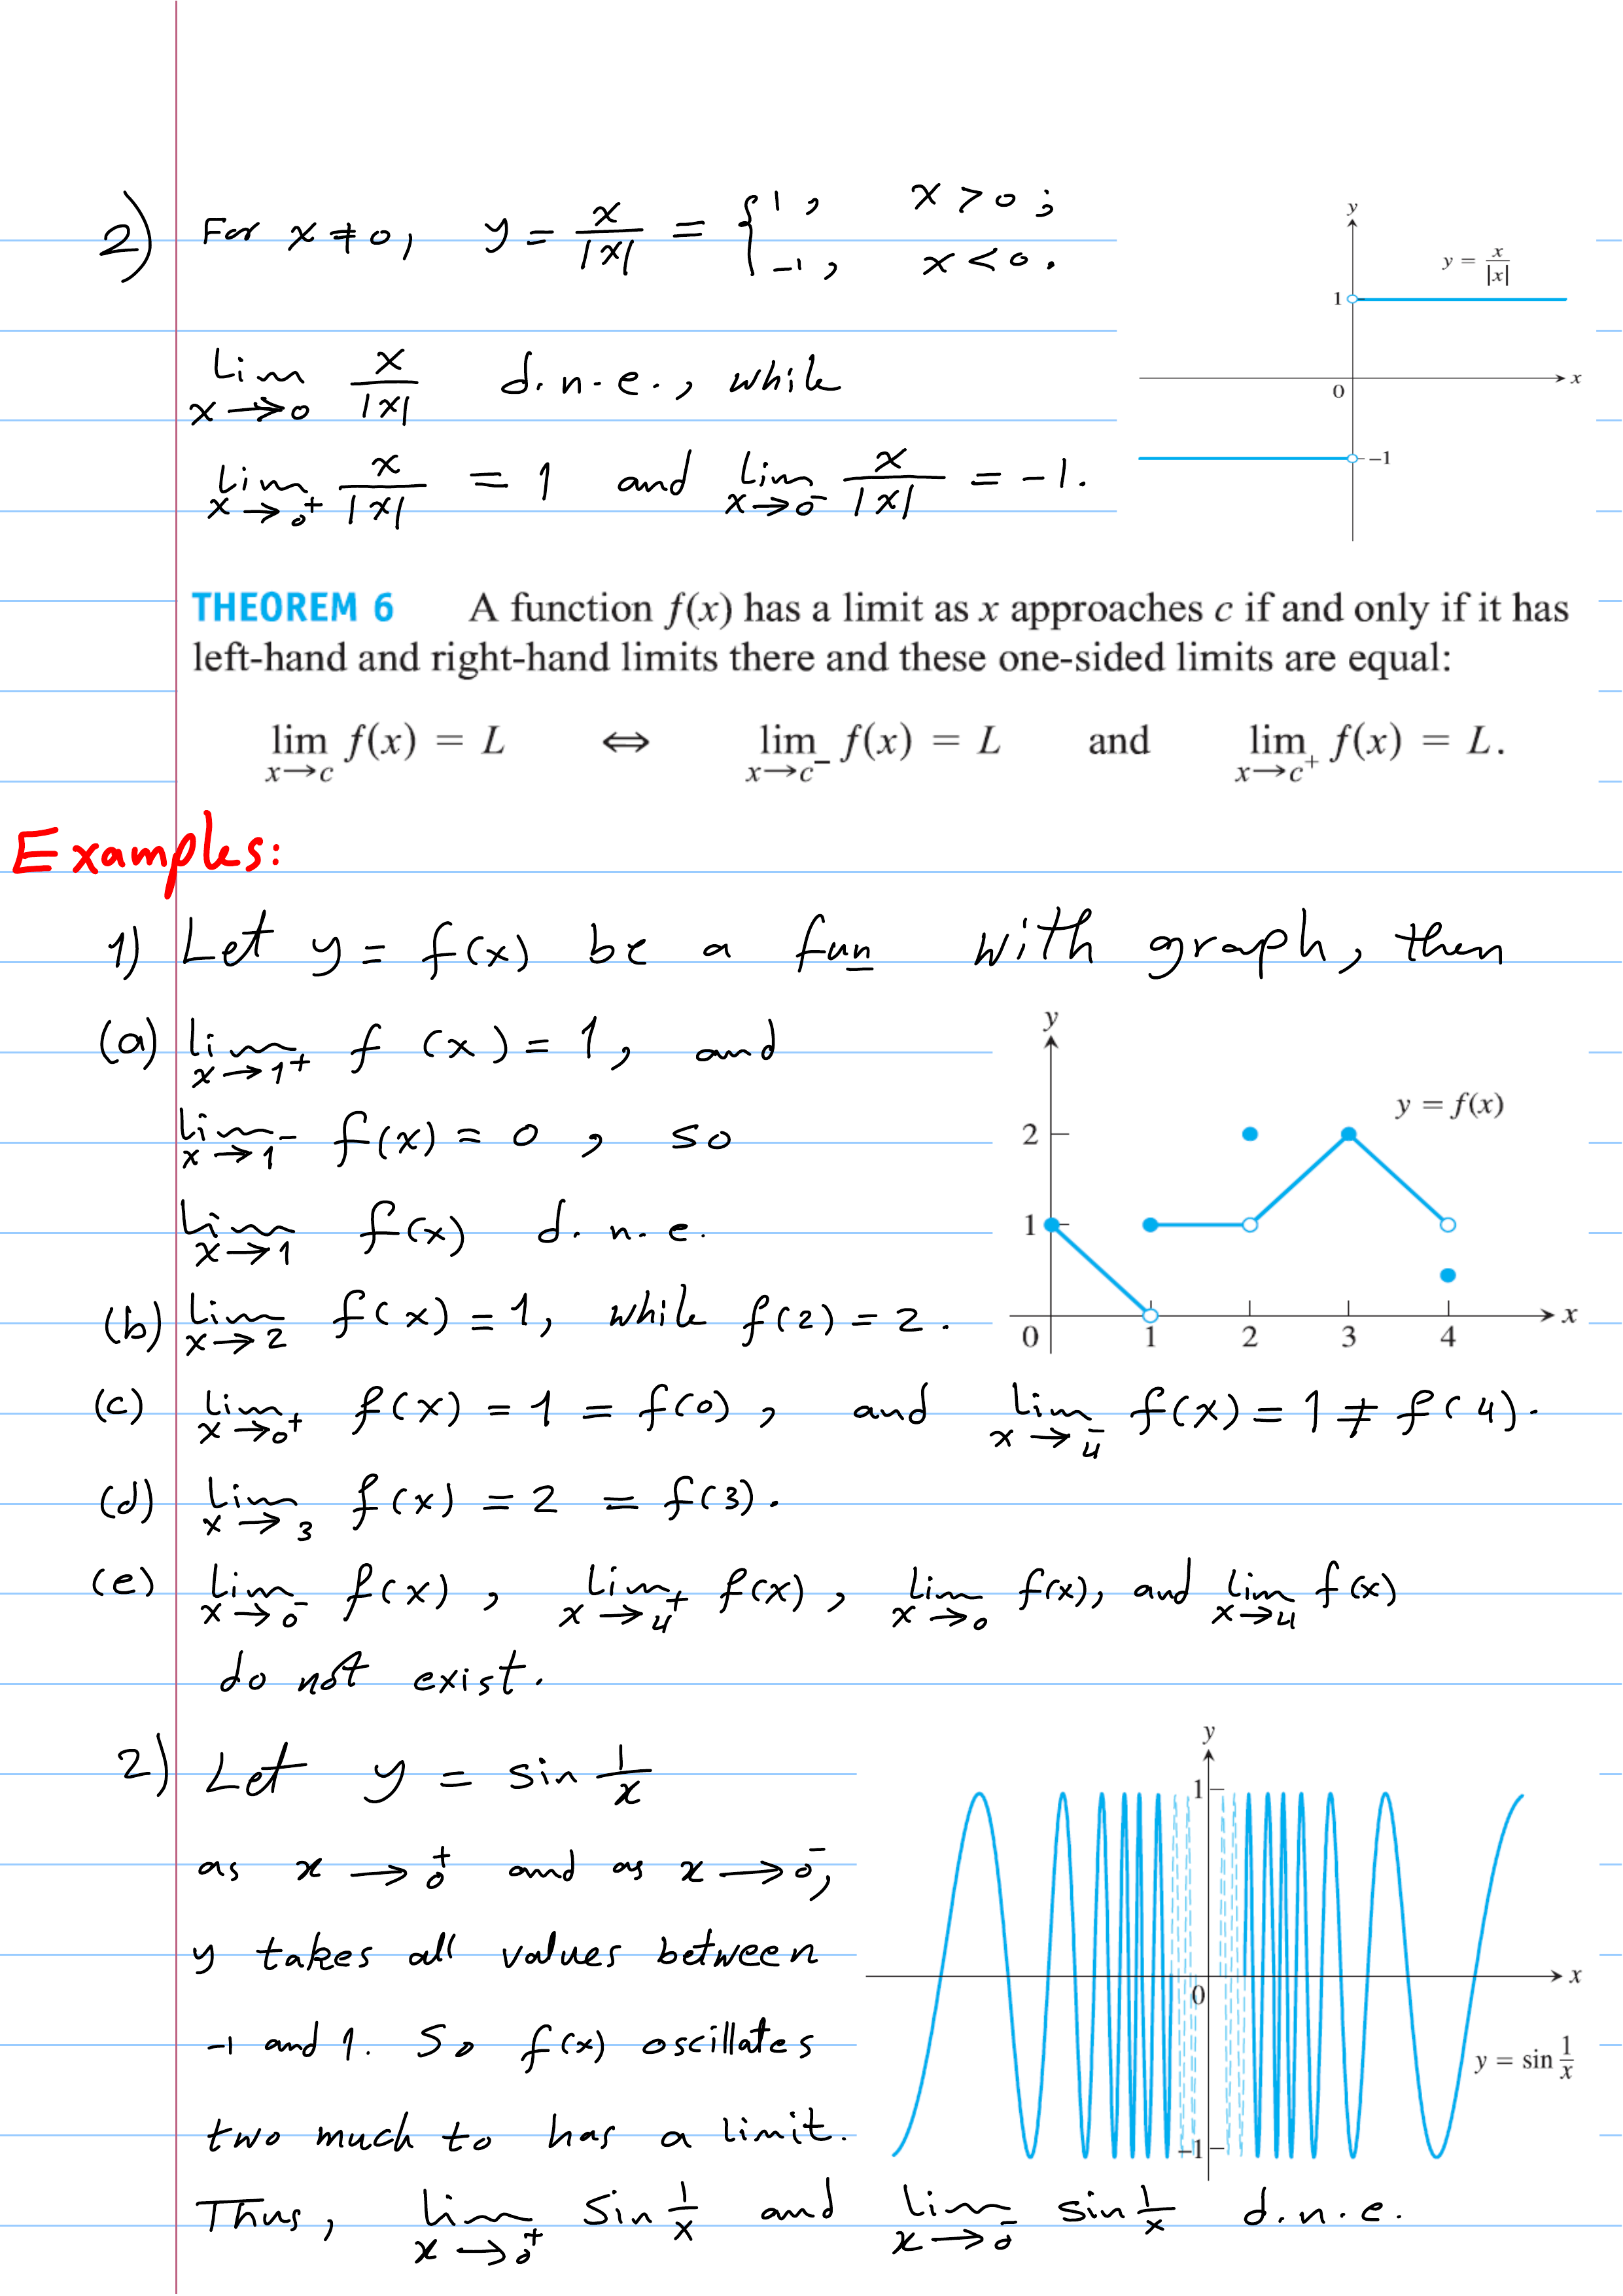 2) For x ≠ 0, y = x/|x| = { 1, x > 0 ;
-1, x < 0.
y
y = x/|x|
1
x
0
-1
Lim x→0 x/|x| d.n.e., while
Lim x→0⁺ x/|x| = 1 and Lim x→0⁻ x/|x| = -1.
THEOREM 6 A function f(x) has a limit as x approaches c if and only if it has
left-hand and right-hand limits there and these one-sided limits are equal:
lim x→c f(x) = L ⇔ lim x→c⁻ f(x) = L and lim x→c⁺ f(x) = L.
Examples:
1) Let y = f(x) be a fun with graph, then
(a) lim x→1⁺ f (x) = 1, and
lim x→1⁻ f(x) = 0, so
Lim x→1 f(x) d.n.e.
(b) Lim x→2 f(x) = 1, while f(2) = 2.
y
y = f(x)
2
1
0 1 2 3 4 x
(c) Lim x→0⁺ f(x) = 1 = f(0), and Lim x→4⁻ f(x) = 1 ≠ f(4).
(d) Lim x→3 f(x) = 2 = f(3).
(e) Lim x→0⁻ f(x), Lim x→4⁺ f(x), Lim x→0 f(x), and lim x→4 f(x)
do not exist.
2) Let y = sin 1/x
as x → 0⁺ and as x → 0⁻,
y takes all values between
-1 and 1. So f(x) oscillates
two much to has a limit.
y
1
x
0
y = sin 1/x
-1
Thus, lim x→0⁺ Sin 1/x and Lim x→0⁻ sin 1/x d.n.e.